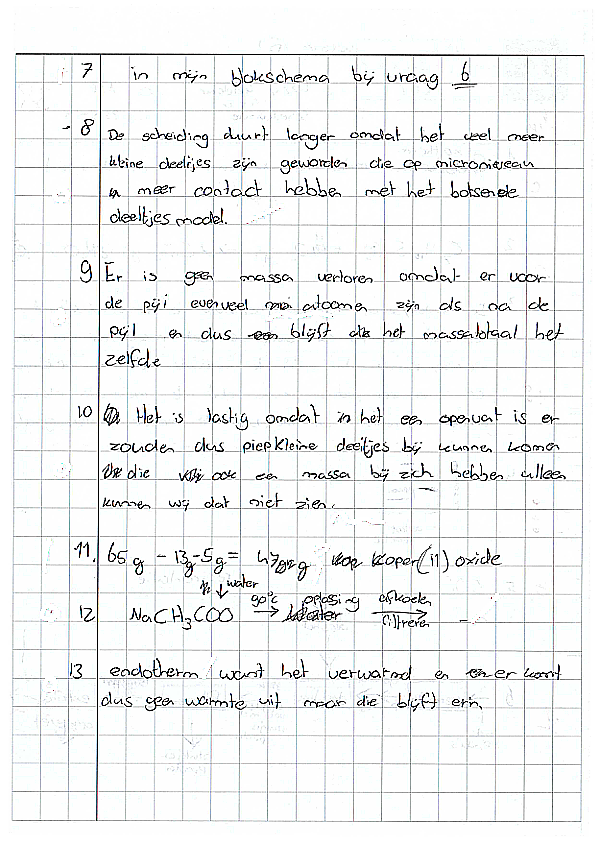 7 in mijn blokschema bij vraag 6
- 8 De scheiding duurt langer omdat het veel meer
kleine deeltjes zijn geworden die op microniveau
meer contact hebben met het botsende
deeltjes model.
9 Er is geen massa verloren omdat er voor
de pijl evenveel atoomen zijn als na de
pijl en dus blijft het massatotaal het
zelfde
10 Het is lastig omdat in het een openvat is er
zouden dus piepkleine deeltjes bij kunnen komen
die ook een massa bij zich hebben alleen
kunnen wij dat niet zien.
11. 65g - 13g - 5g = 47g koper(II) oxide
water
90°C oplossing afkoelen
12 NaCH3COO → →
filtreren
13 endotherm want het verwarmd en er komt
dus geen warmte uit maar die blijft erin.